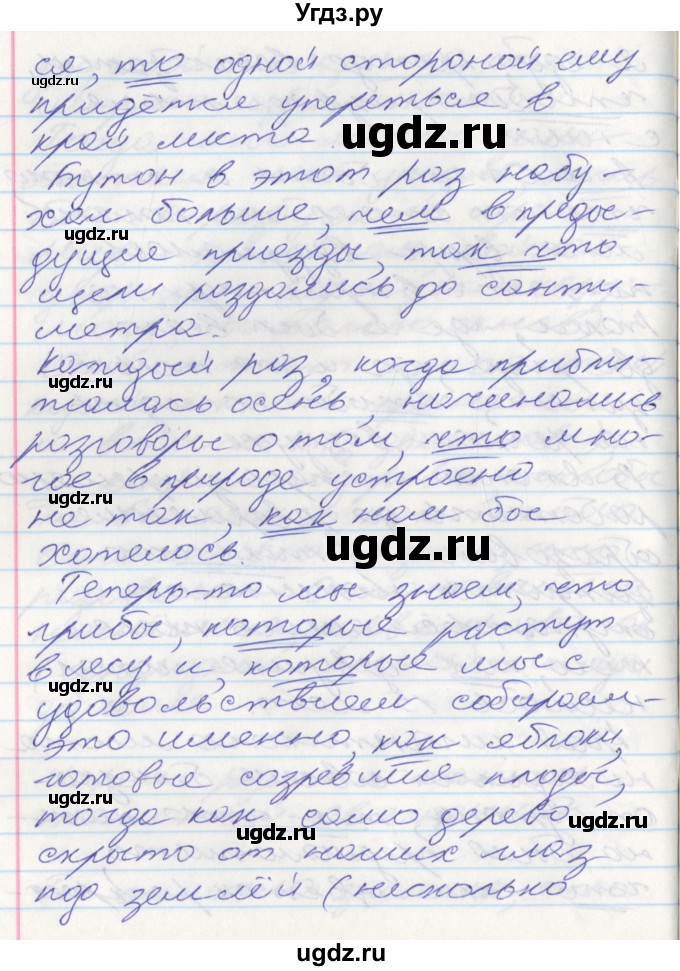 Угдз.ру
ся, то одной стороной ему
придётся упереться в
край листа.
Бутон в этот раз набу-
хал больше, чем в преды-
дущие приезды, так что
щели раздались до санти-
метра.
Каждый раз, когда прибли-
жалась осень, начинались
разговоры о том, что мно-
гое в природе устроено
не так, как нам бы
хотелось.
Теперь-то мы знаем, что
грибы, которые растут
в лесу и, которые мы с
удовольствием собираем-
это именно, как яблоки,
готовые созревшие плоды,
тогда как само дерево
скрыто от наших глаз
под землёй (несколько
ugdz.ru
ugdz.ru
ugdz.ru
ugdz.ru
ugdz.ru
ugdz.ru
ugdz.ru
ugdz.ru
ugdz.ru
ugdz.ru
ugdz.ru
ugdz.ru